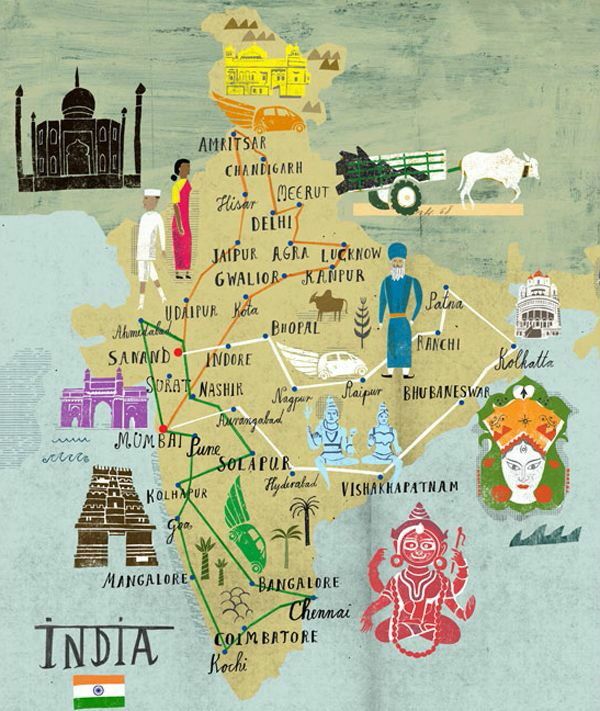 AMRITSAR
CHANDIGARH
Hisar
MEERUT
DELHI
JAIPUR
AGRA
LUCKNOW
GWALIOR
KANPUR
UDAIPUR
Kota
Patna
Ahmedabad
BHOPAL
RANCHI
SANAND
INDORE
Kolkatta
SURAT
NASHIR
Nagpur
Raipur
BHUBANESWAR
Aurangabad
MUMBAI
Pune
SOLAPUR
Hyderabad
VISHAKHAPATNAM
KOLHAPUR
Goa
MANGALORE
BANGALORE
Chennai
COIMBATORE
Kochi
INDIA